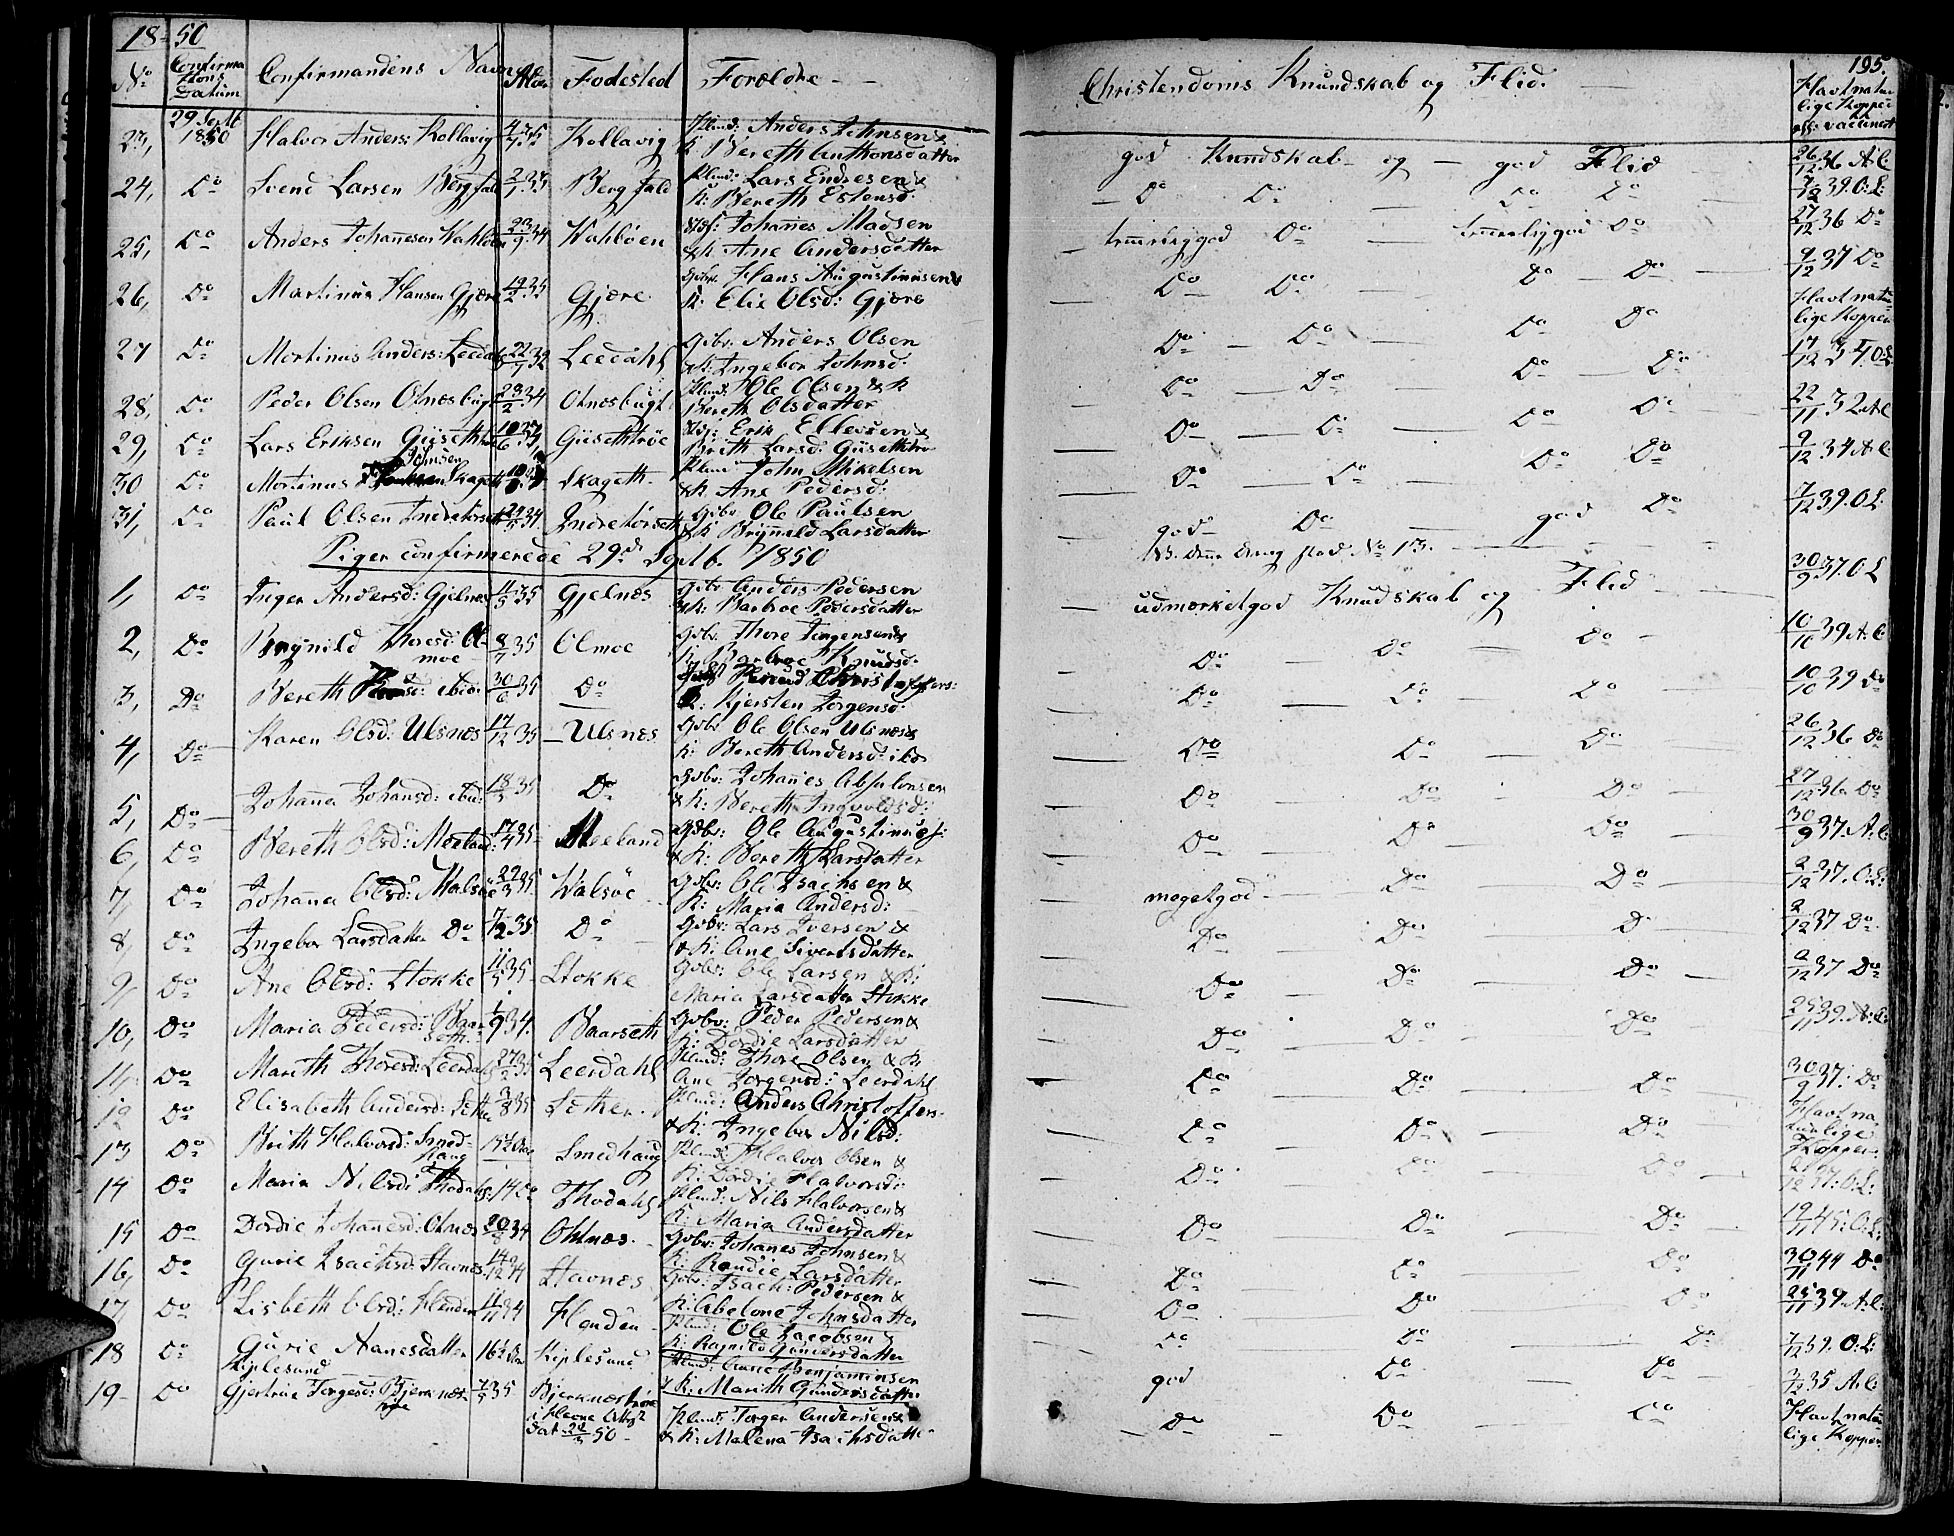 18 50
195.
No Confirmations Datum Confirmandens Navne Alder Fødested Forældre
Christendoms Kundskab og Flid.
Havt naturlige Kopper ell: vaccineret
29 Septb 1850
23, Halvor Anders: Kollavig 35 Kollavig Pland: Anders Johnsen & K: Bereth Anthonsdatter
god Kundskab og god Flid 26/12 36 A.C.
24, Do Svend Larsen Bergfald 35 Bergfald Pland: Lars Endresen & K: Bereth Estensd:
Do Do Do Do 7/12 39. O: L:
25, Do Anders Johannesen Wahløen 23/9 34 Wahløen Johannes Madsen & K Ane Andersdatter
temmelig god Do temmelig god Do 27/12 36 Do
26, Do Martinus Hansen Gjære 19/2 35 Gjære. Gbr. Hans Augustinusen & K: Elie Olsd: Gjære
Do Do Do Do 9/12 37 Do
27 Do Mortinus Anders: Leedahl 22/7 32 Leedahl Gbr. Anders Olsen & K: Ingebor Johnsd:
Do Do Do Do Havt naturlige Kopper
28, Do Peder Olsen Otnæsbugt 28/2 34 Otnæsbugt Pland: Ole Olsen & K Bereth Olsdatter
Do Do Do Do 17/12 35 O: L
29, Do Lars Eriksen Giisethtrøe Giisethtrøe Erik Ellevsen & Brith Larsd: Giisethtrøe
Do Do Do Do 22/11 32 A: C
30 Do Mortinus Johnsen Skageth Skageth. Pland: John Mikelsen & K Ane Pedersd:
Do Do Do Do 9/12 34 A: C:
31, Do Paul Olsen Indretørseth 34 Indretørseth Gbr. Ole Paulsen & K Brynnild Larsdatter
god Do god Do 7/12 39. O L
NB. denne Dreng stod No 13.
Piger confirmerede 29d Septb. 1850
1, Do Inger Andersd: Gjelnæs 11/5 35 Gjelnæs Gbr Anders Pedersen & K: Barbroe Pedersdatter
udmærketgod Kundskab og Flid 30/9 37. O L
2, Do Brynild Thoresd: Olmoe 8/7 35 Olmoe Gbr. Thore Jørgensen & K: Barbroe Knudsd:
Do Do Do 10/10 39 A: C
3, Do Bereth ibid: 30/6 35 Do K: Kjersten Jørgensd:
Do Do Do 10/10 39 Do
4, Do Karen Olsd: Ulsnæs 17/12 35 Ulsnæs Gbr Ole Olsen Ulsnæs & K: Bereth Andersd: ibd
Do Do Do 26/12 36 Do
5, Do Johanna Johansd: ibid: 35 Do Gbr: Johannes Absalonsen & K: Bereth Ingvoldsd:
Do Do Do 27/12 36 Do
6, Do Bereth Olsd: Meeland: 17/4 35 Meeland Gbr: Ole Augustinus: & K: Bereth Larsdatter
Do Do Do 30/9 37. A: C:
7, Do Johanna Olsd: Walsøe 22/3 35 Walsøe Gbr: Ole Isachsen & K: Maria Andersd:
megetgod Do Do 2/12 37. O: L:
8, Do Ingebor Larsdatter Do 7/12 35 Do Gbr: Lars Iversen & K: Ane Sivertsdatter
Do Do Do 2/12 37 Do
9, Do Ane Olsd: Stokke 11/5 35 Stokke Gbr: Ole Larsen & K: Maria Larsdatter Stokke
Do Do Do 2/12 37 Do
10, Do Maria Pedersd: Baarseth: 1/9 34. Baarseth Gbr: Peder Pedersen & K: Dordie Larsdatter
Do Do Do 25/11 39. A: C:
11, Do Marith Thoresd: Leerdahl 27/2 35 Leerdahl Pland: Thore Olsen & K: Ane Jørgensd: Leerdahl
Do Do Do 30/9 37: Do
12 Do Elisabeth Andersd: Sether 3/8 35 Sether. Pland: Anders Christoffers: & K: Ingebor Nilsd:
Do Do Do Havt naturlige Kopper
13 Do Brith Halvorsd: Smedhaug 15½ Smedhaug Pland: Halvor Olsen & K: Dordie Halvorsd:
Do Do Do 37: O: L:
14 Do Maria Nilsd: Thodahl 14 Do Thodahl Pland: Nils Halvorsen & K: Maria Andersdatter
Do Do Do 19/11 45: O: L:
15 Do Dordie Johannesd: Otnæs 20/8 34 Ohtnæs. Gbr: Johanes Johnsen & K: Randie Larsdatter
Do Do Do 30/11 44 Do
16, Do Gurie Isachsd: Stavnæs 14/12 34 Stavnæs Gbr: Isach: Pedersen & K: Abelone Johnsdatter
Do Do Do 25/11 39 A: C:
17, Do Lisbeth Olsd: Henden 11/11 34 Henden Pland: Ole Jacobsen & K: Ragnild Gundersdatter
Do Do Do 7/12 39. O: L:
18 Do Gurie Aanesdatter Kiplesund 16½ Kiplesund Pland: Aane Benjaminsen & K: Marith Gundersdatter
god Do Do 3/12 35 A: C:
19 Do Gjertrue Torgesd: Bjerknæs 7/5 35 Bjerknæstrøe i Hevne Attst dat 50 Pland: Torger Andersen & K: Malena Isachsdatter
Do Do Do Havt naturlige Kopper